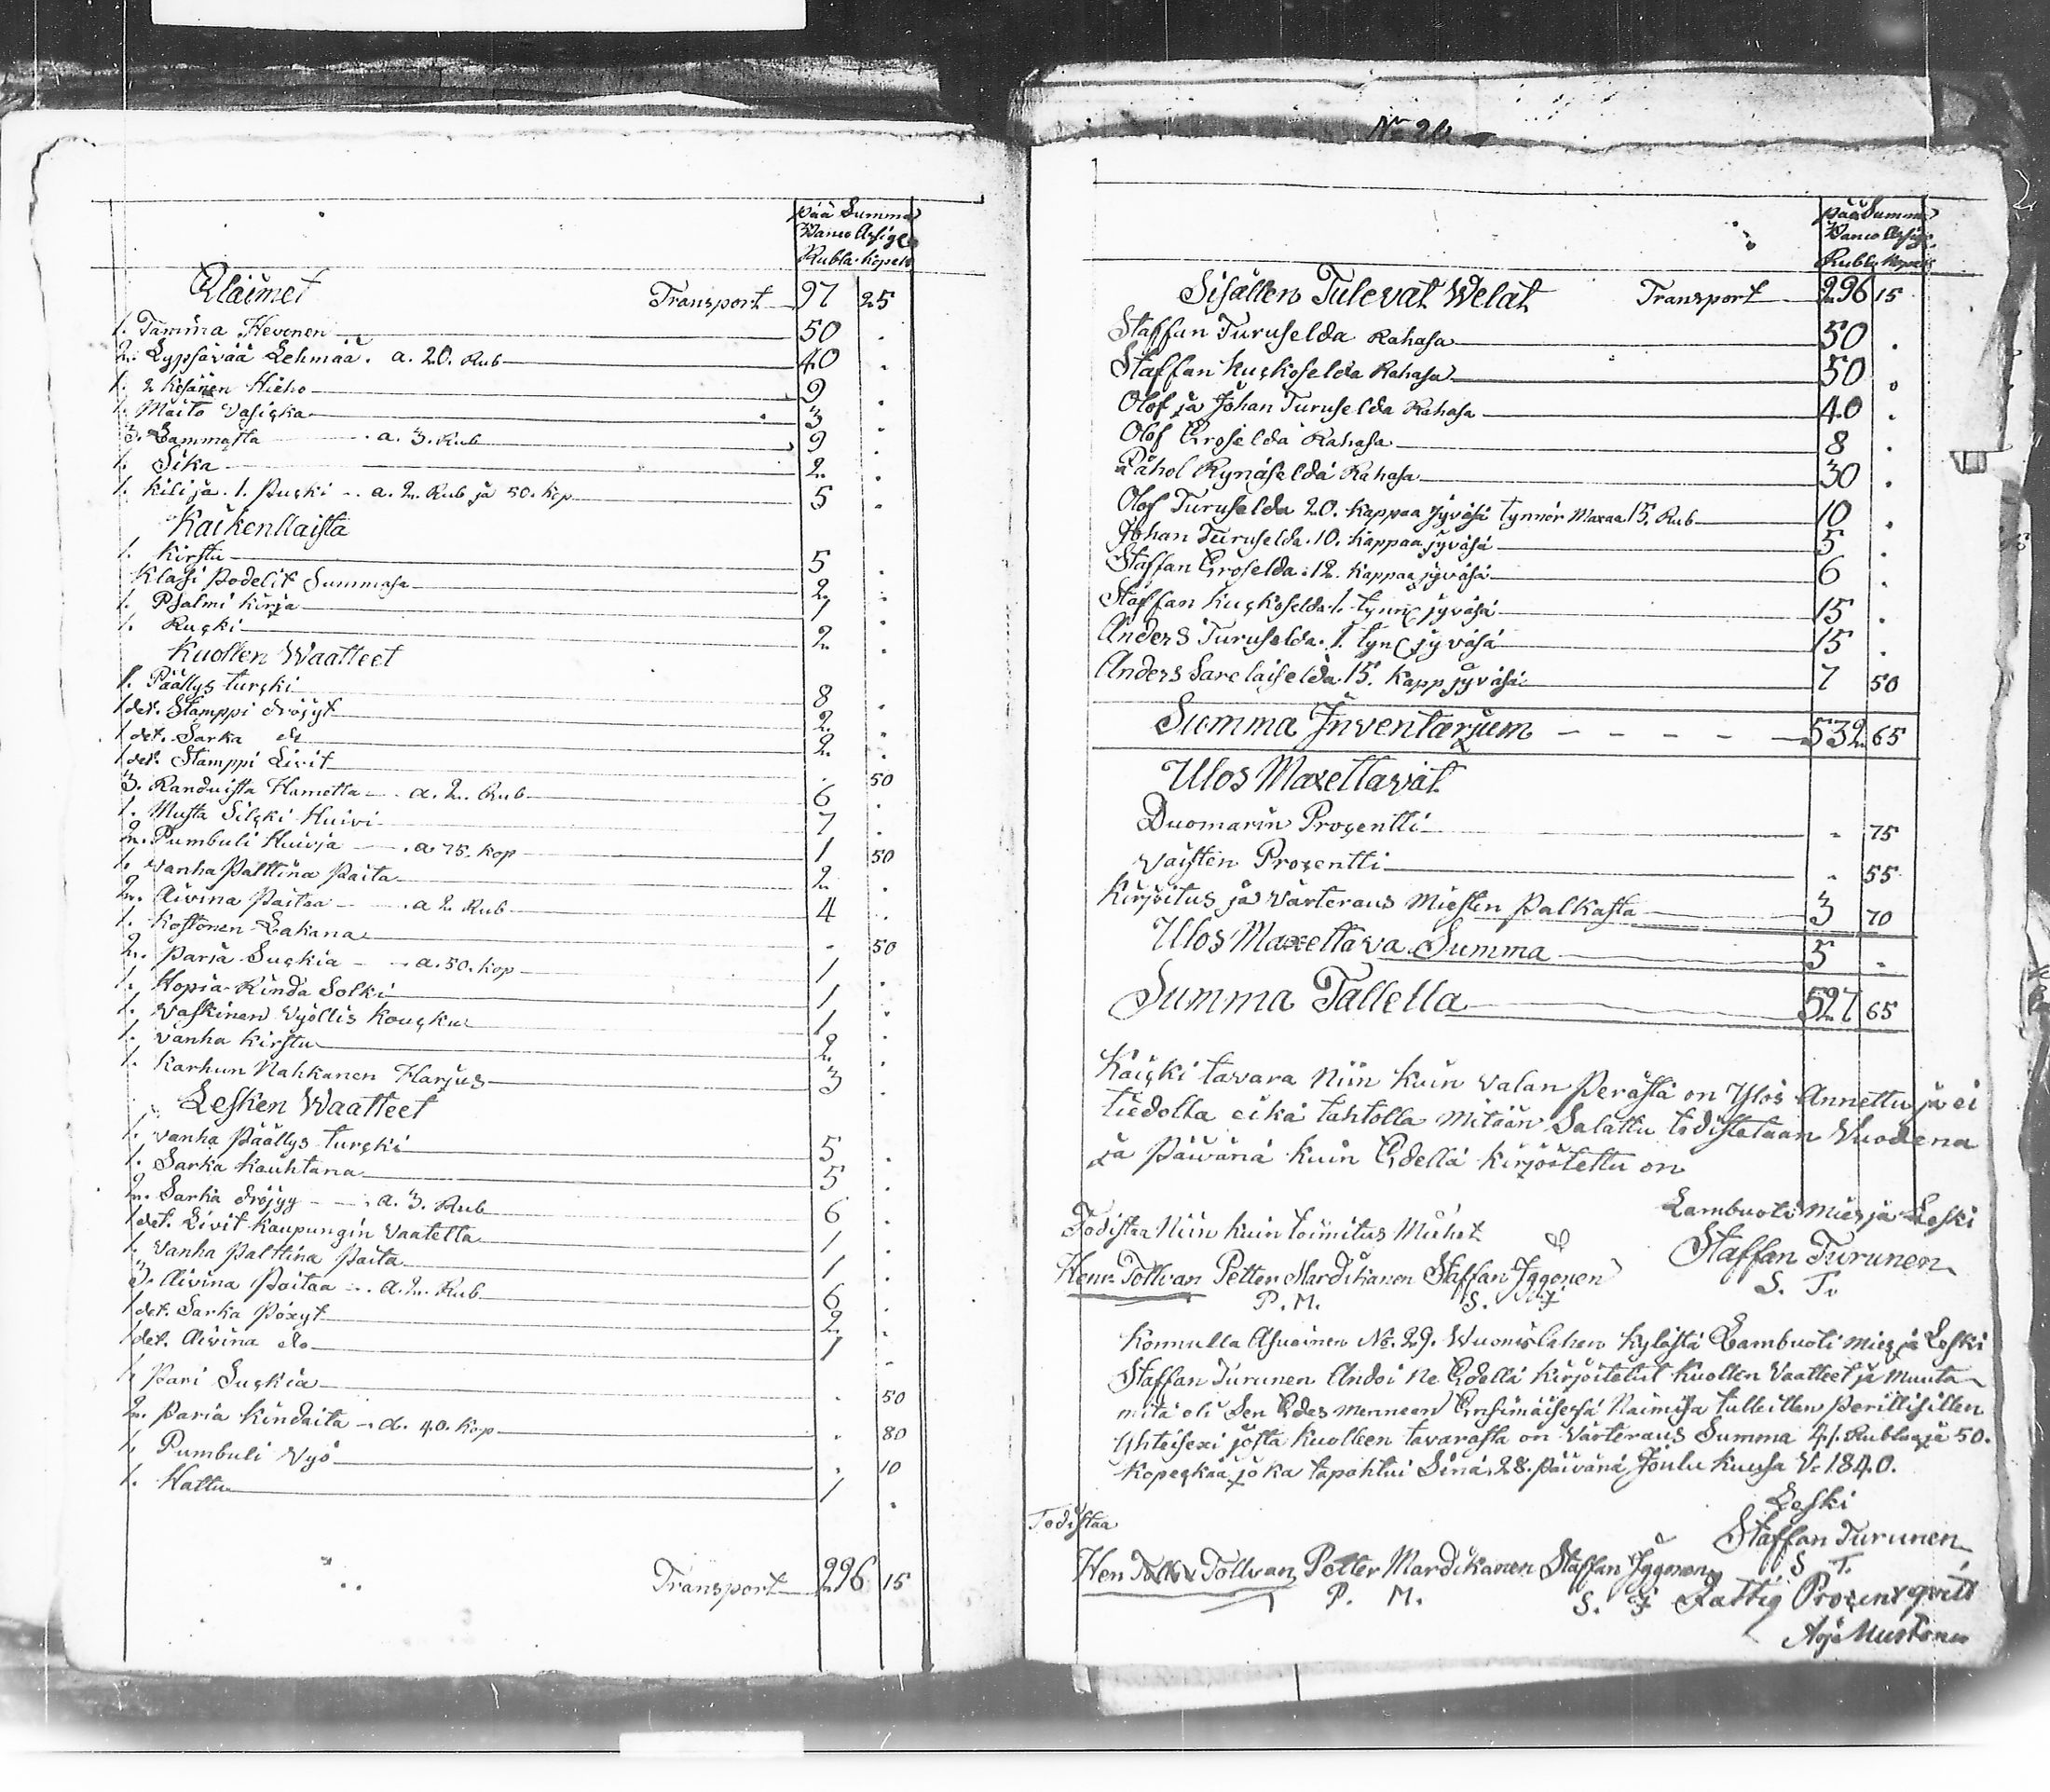 pää Summa
Banco Assigt
Rubla kopek
Eläimet Transport 97 25
1. Tamma Hevonen 50 .
2. Lypsävää Lehmää. a. 20. Rub 40 .
1. 2 kesänen Hieho 9 .
1. Maito Vasicka 3 .
3. Lammasta a. 3. Rub 9 .
1. Sika 2 .
1. kili ja. 1. pucki a. 2. Rub ja 50. kop 5 .
Kaikenllaista
1. kirstu 5 .
klasi podelit Summasa 2 .
1. Psalmi kirja 1 .
1. Rucki 2 .
Kuollen Waatteet
1. Päällys turcki 8 .
1 det. Stamppi dröjyt 2 .
1 det. Sarka do 2 .
1 det. Stamppi Livit . 50
3. Randuista Hametta a. 2. Rub 6 .
1. Musta Silcki Huivi 7 .
2. Pumbuli Huivia a 75. kop 1 50
1. vanha palttina paita 2 .
2. Aivina paitaa a 2. Rub 4 .
1. kostonen Lakana . 50
2. paria Suckia a. 50. kop 1 .
1. Hopia Rinda Solki 1 .
1. vaskinen vyöllis koucku 1 .
1. vanha kirstu 2 .
1. karhun Nahkanen Harjus 3 .
Lesken Waatteet
1. vanha päällys turcki 5 .
1. Sarka kauhtana 5 .
2. Sarka dröjyy a. 3. Rub 6 .
1 det. Livit kaupungin vaatetta 1 .
1. vanha palttina paita 1 .
3. Aivina paitaa a. 2. Rub 6 .
1 det. Sarka pöxyt 2 .
1 det. Aivina do 1 .
1. pari Suckia . 50
2. paria kindaita a. 40. kop . 80
1. Pumbuli vyö . 10
1. Hattu 1 .
Transport 296 15
No 26
pää Summa
Banco Assigt
Rubla kopek
Sisällen Tulevat Welat Transport 296 15
Staffan Turuselda Rahasa 50 .
Staffan kuckoselda Rahasa 50 .
Olof ja Johan Turuselda Rahasa 40 .
Olof Eroselda Rahasa 8 .
Påhol Rynäselda Rahasa 30 .
Olof Turuselda 20. kappaa jyväsä tynnör Maxaa 15. Rub 10 .
Johan Turuselda. 10. kappaa jyväsä 5 .
Staffan Eroselda. 12. kappaa jyväsä 6 .
Staffan kuckoselda 1. tynn jyväsä 15 .
Anders Turuselda. 1. tyn jyväsä 15 .
Anders Sarelaiselda 15. kapp jyväsä 7 50
Summa Inventarjum 532 65
Ulos Maxettavat
Duomarin Procentti . 75
vaisten Procentti . 55
kirjoitus ja värteraus Miesten palkasta 3 70
Ulos Maxettava Summa 5 .
Summa Tallella 527 65
Kaicki tavara Niin kuin valan perästä on Ylös Annettu ja ei
tiedolla eikä tahtolla mitään Salattu todistetaan Vuodena
ja päivänä kuin Edellä kirjoitettu on
Lambuoti Mies ja Leski
Staffan Turunen
S. T.
Todistaa Niin kuin toimitus Miehet
Henr Tollvan Petter Mardikanen Staffan Iggonen
P. M. S. I
konnulla Asuainen No. 29. Wuonislahen kylästä Lambuoti mies ja Leski
Staffan Turunen Andoi Ne Edellä kirjoitetut kuollen vaatteet ja muuta
mitä oli Sen Edes menneen Ensimäisesä Naimisa tulleitten perillisillen
Yhteisexi josta kuolleen tavarasta on värteraus Summa 41. Rublaa ja 50.
kopeckaa joka tapahtui Sinä 28. päivänä Joulu kuusa V. 1840.
Leski
Staffan Turunen
S T.
Todistaa
Hen Tollvan Petter Mardikanen Staffan Iggonen
P. M. S. I
Fattig Procent qvitt
Mustonen